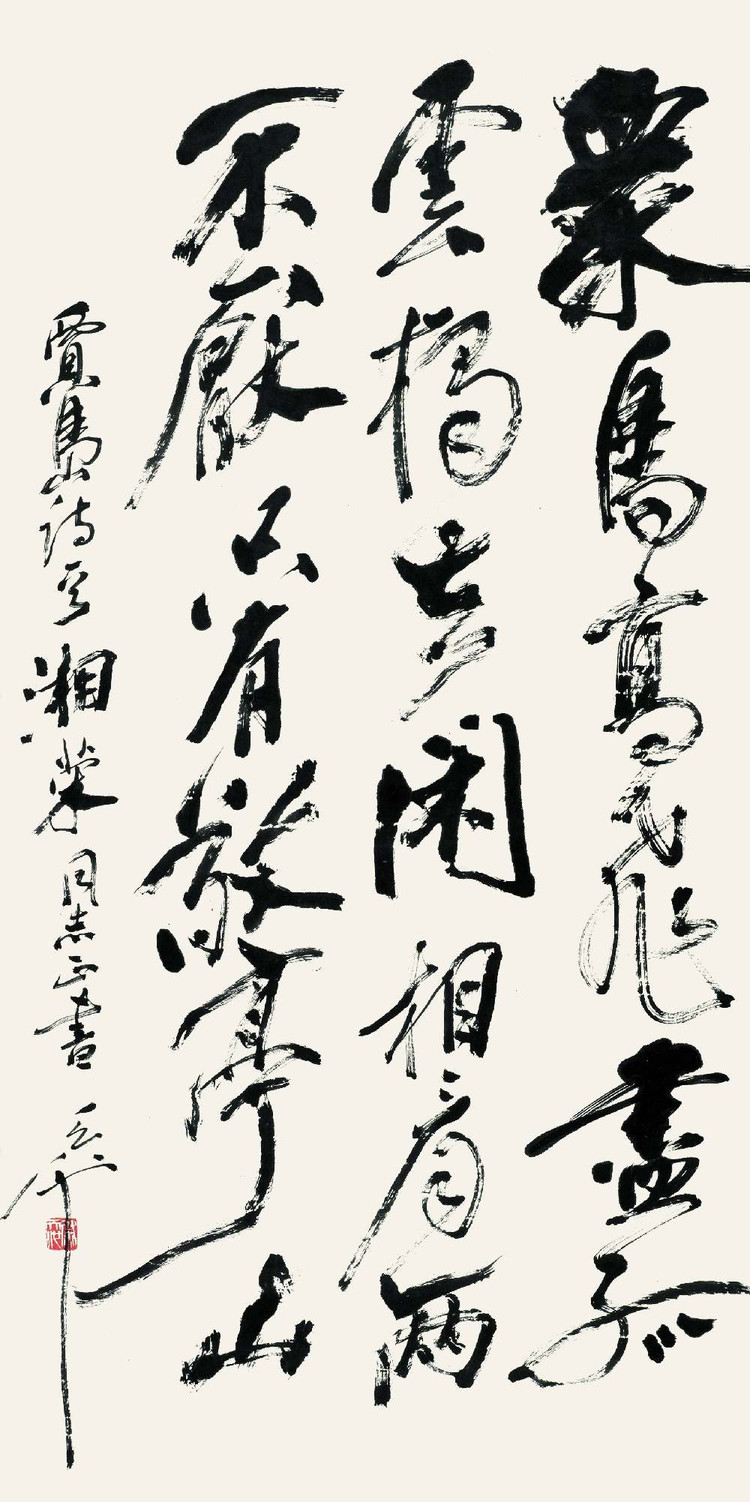 眾鳥高飛盡孤
雲獨去閑相看兩
不厭只有敬亭山
賈島詩 湘 同志正書